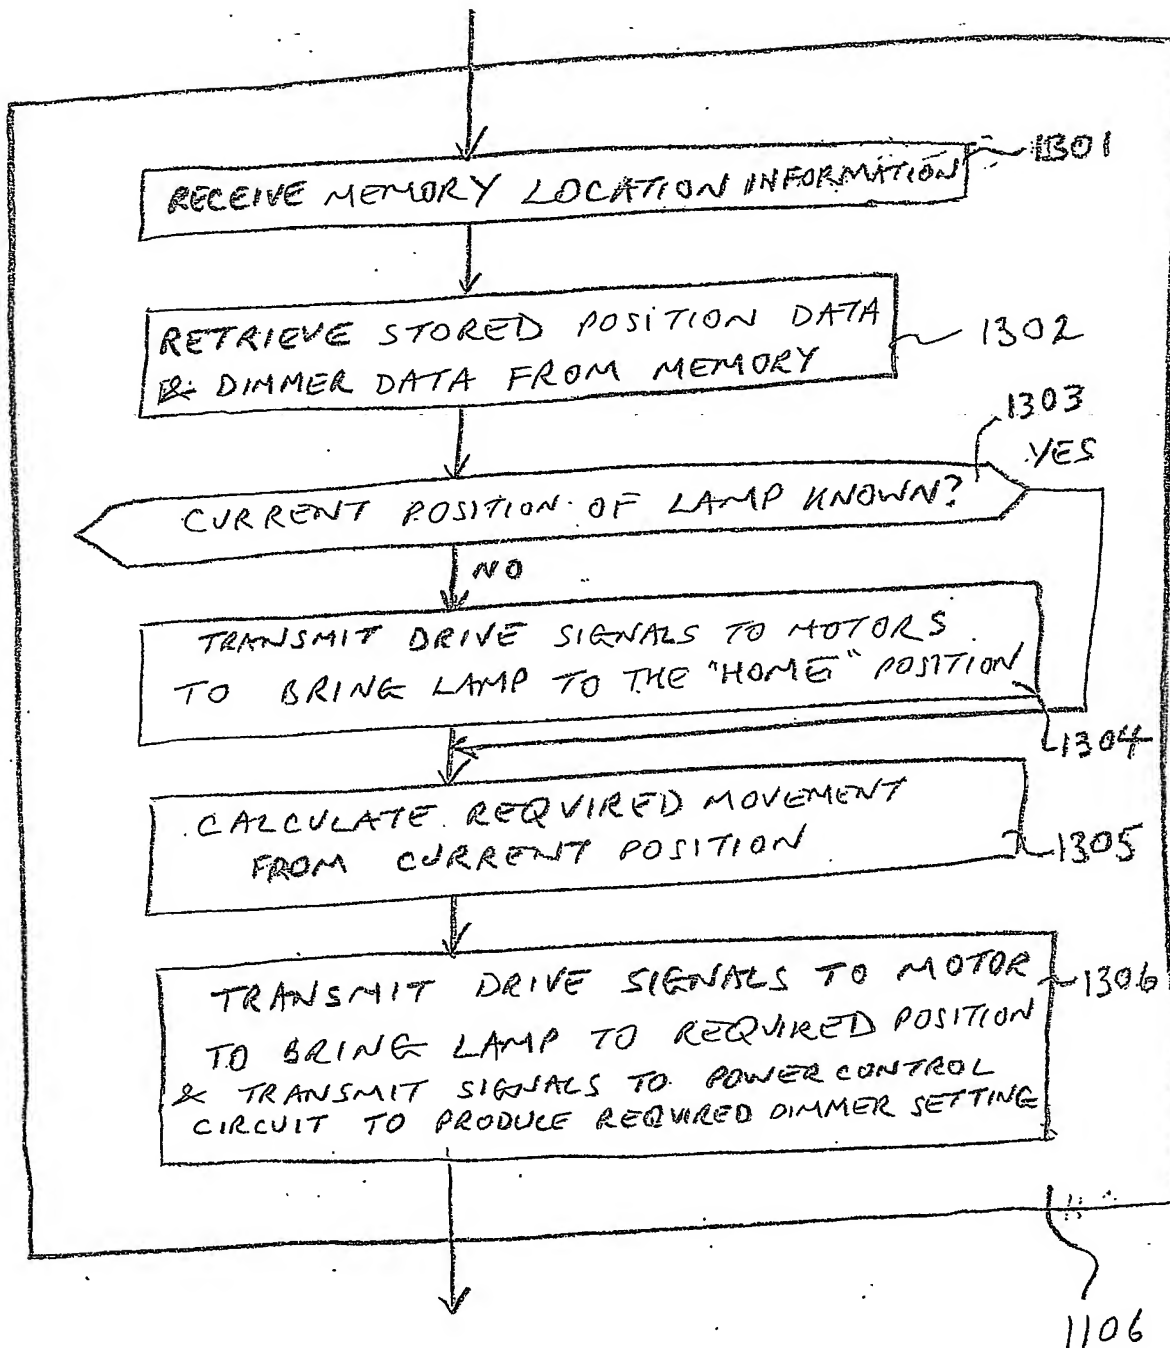 RECEIVE MEMORY LOCATION INFORMATION
1301
RETRIEVE STORED POSITION DATA
& DIMMER DATA FROM MEMORY
1302
1303
YES
CURRENT POSITION OF LAMP KNOWN?
NO
TRANSMIT DRIVE SIGNALS TO MOTORS
TO BRING LAMP TO THE "HOME" POSITION
1304
CALCULATE REQUIRED MOVEMENT
FROM CURRENT POSITION
1305
TRANSMIT DRIVE SIGNALS TO MOTOR
TO BRING LAMP TO REQUIRED POSITION
& TRANSMIT SIGNALS TO POWER CONTROL
CIRCUIT TO PRODUCE REQUIRED DIMMER SETTING
1306
1106